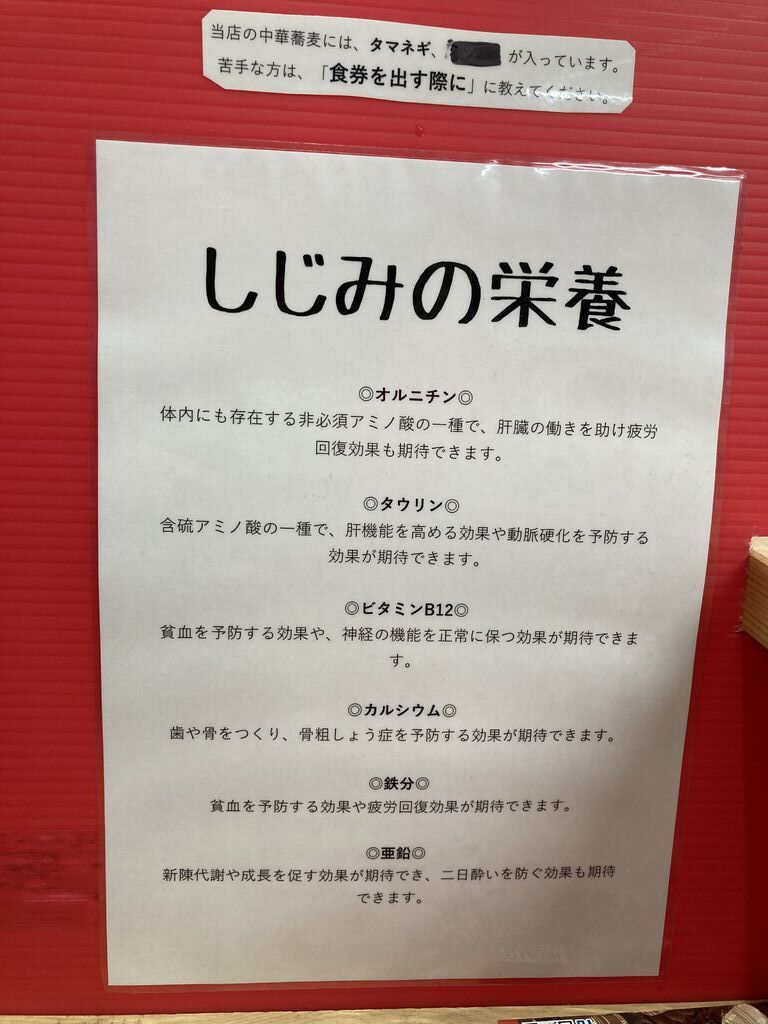 当店の中華蕎麦には、タマネギ、 が入っています。
苦手な方は、「食券を出す際に」に教えてください。
しじみの栄養
◎オルニチン◎
体内にも存在する非必須アミノ酸の一種で、肝臓の働きを助け疲労
回復効果も期待できます。
◎タウリン◎
含硫アミノ酸の一種で、肝機能を高める効果や動脈硬化を予防する
効果が期待できます。
◎ビタミンB12◎
貧血を予防する効果や、神経の機能を正常に保つ効果が期待できま
す。
◎カルシウム◎
歯や骨をつくり、骨粗しょう症を予防する効果が期待できます。
◎鉄分◎
貧血を予防する効果や疲労回復効果が期待できます。
◎亜鉛◎
新陳代謝や成長を促す効果が期待でき、二日酔いを防ぐ効果も期待
できます。